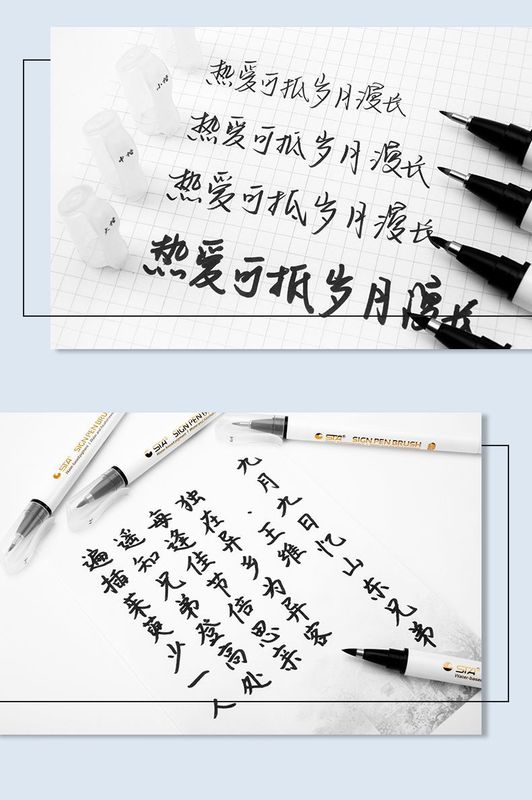 热爱可抵岁月漫长
热爱可抵岁月漫长
热爱可抵岁月漫长
热爱可抵岁月漫长
STA® SIGN PEN BRU
STA® SIGN PEN
STA® SIGN PEN BRUSH
九月九日忆山东兄弟
·王维
独在异乡为异客
每逢佳节倍思亲
遥知兄弟登高处
遍插茱萸少一人
STA®
Water-based